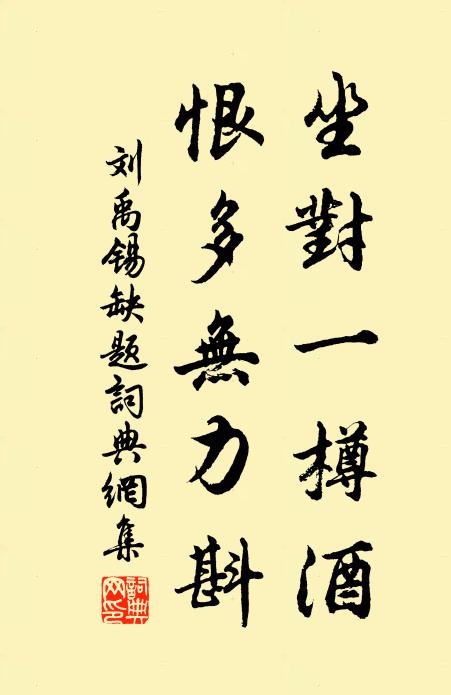 坐對一樽酒
恨多無力斟
刘禹锡缺题詞典網集
詞典網印